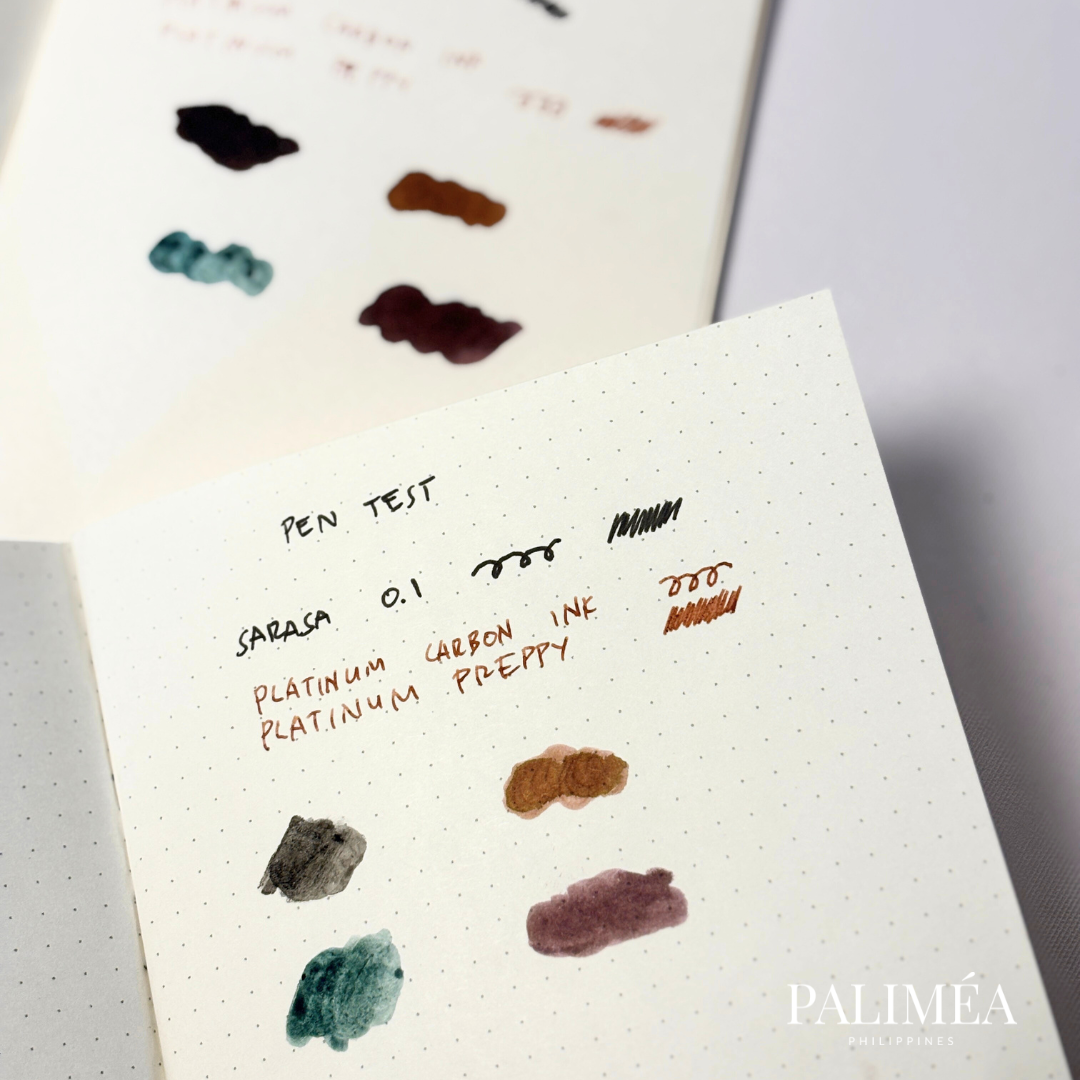 CARBON INK
PLATINUM
PEN TEST
SARASA 0.1
PLATINUM CARBON INK
PLATINUM PREPPY
PALIMÉA
PHILIPPINES